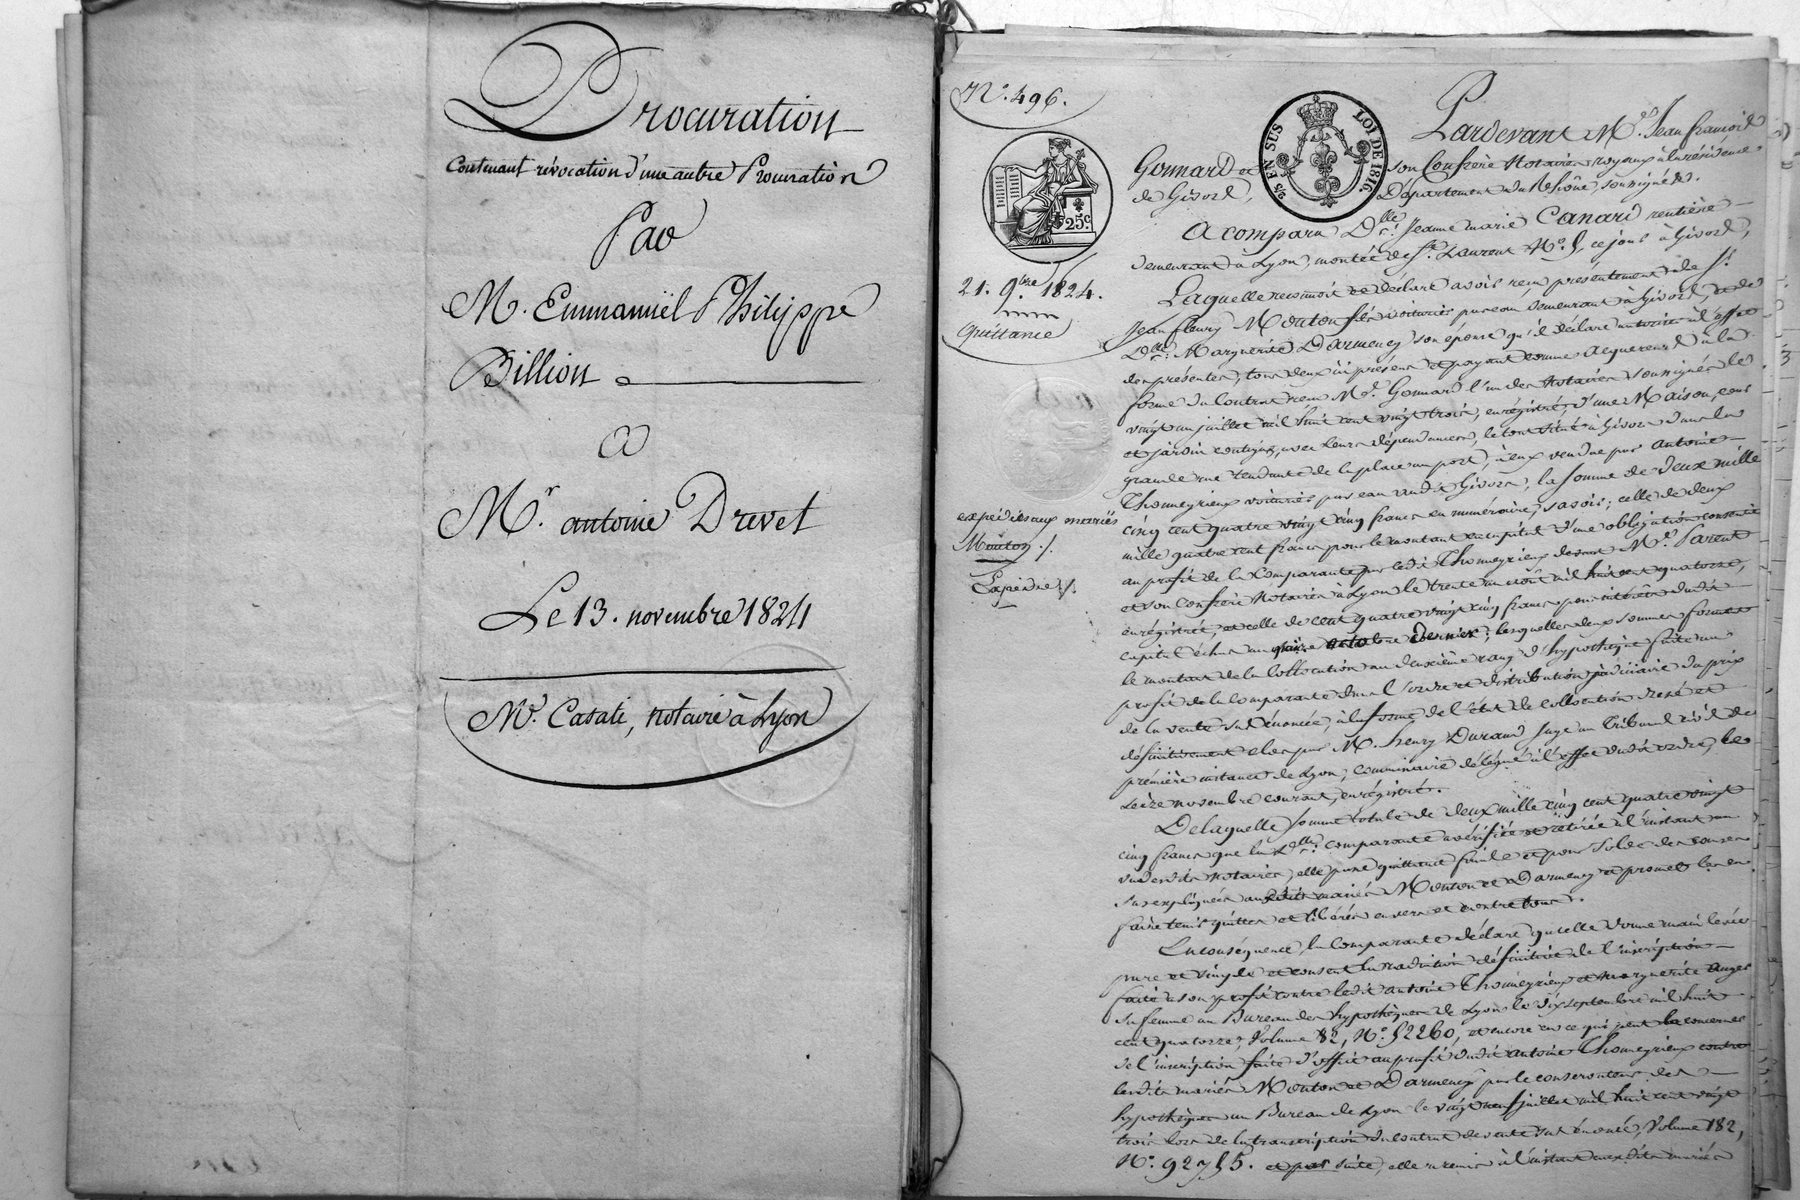 Procuration
Contenant révocation d'une autre Procuration
Par
M. Emmanuël Philippe
Billion
A
Mr. antoine Drevet
Le 13. novembre 1824
Me. Casati, notaire à Lyon
No. 496.
25c.
21. 9bre 1824.
Quittance
expédiés aux mariés
Mouton ./.
Expédié ./.
2/5 EN SUS
LOI DE 1816.
Pardevant Mes. Jean françois
Gonnard et son Confrère Notaires royaux à la résidence
de Givors, Département du Rhône, soussignés.
A comparu Dlle. Jeanne marie Canard rentière
demeurant à Lyon, montée de St. Laurent No. 5, ce jour à Givors,
Laquelle reconnoit et déclare avoir reçu présentement de Sr.
Jean fleury Mouton fils voiturier par eau demeurant à Givors, et de
Dlle. Marguerite Darmency son épouse qu'il déclare autoriser à l'effet
des présentes, tous deux ici présens et payant comme acquéreurs à la
forme du Contrat reçu Me. Gonnard l'un des Notaires soussignés le
vingt un juillet mil huit cent vingt trois, enregistré, d'une Maison, cour
et jardin contigus, avec leurs dépendances, le tout situé à Givors dans la
grande rue tendante de la place au port, à eux vendue par antoine
Thomeyrieux voiturier par eau audit Givors, la somme de deux mille
cinq cent quatre vingt cinq francs en numéraire, savoir; celle de deux
mille quatre cent francs pour le montant en capital d'une obligation consentie
au profit de la Comparante par ledit Thomeyrieux devant Me. Parent
et son Confrère Notaires à Lyon le trente un août mil huit cent quatorze,
enregistrée, et celle de cent quatre vingt cinq francs pour intérêts dudit
capital échus au quinze octobre dernier; lesquelles deux sommes forment
le montant de la Collocation au deuxième rang d'hypothèque faite au
profit de la comparante dans l'ordre et distribution judiciaire du prix
de la vente sus énoncée, à la forme de l'état de collocation dressé et
définitivement clos par M. henry Durand, Juge au Tribunal civil de
première instance de Lyon, commissaire délégué à l'effet dudit ordre, le
seize novembre courant, enregistré.
De laquelle somme totale de deux mille cinq cent quatre vingt
cinq francs que la Dlle. comparante a vérifiée et retirée à l'instant au
vu desdits notaires, elle passe quittance finale et pour solde des causes
sus expliquées auxdits mariés Mouton et Darmency et promet les en
faire tenir quittes et libérés envers et contre tous.
En conséquence, la Comparante déclare qu'elle donne main levée
pure et simple et consent la radiation définitive de l'inscription
faite à son profit contre ledit antoine Thomeyrieux et Marguerite
sa femme au Bureau des hypothèques de Lyon le dix septembre mil huit
cent quatorze, Volume 82, No. 52260, et encore en ce qui peut la concerner
de l'inscription faite d'office au profit dudit antoine Thomeyrieux contre
lesdits mariés Mouton et Darmency par le conservateur des
hypothèques au Bureau de Lyon le vingt neuf juillet mil huit cent vingt
trois lors de la transcription du contrat de vente sus énoncé, Volume 182,
No. 92755. et par suite, elle a remis à l'instant auxdits mariés